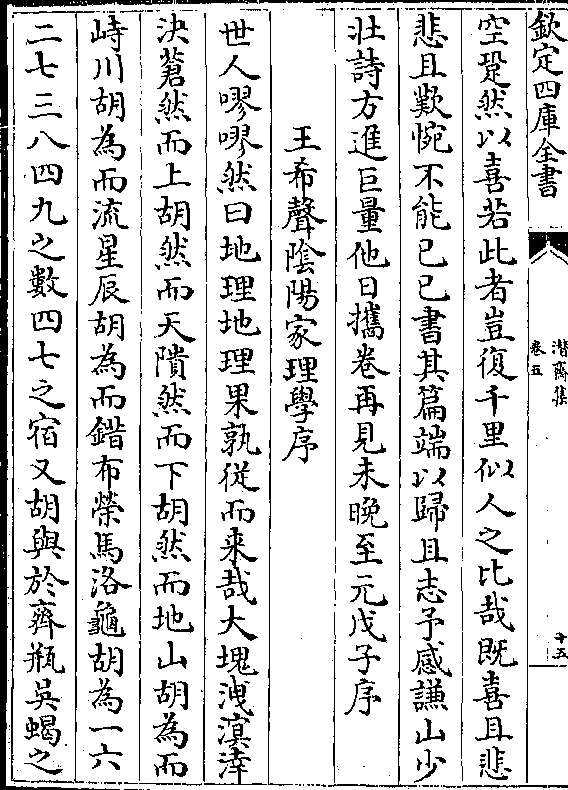 欽定四庫全書
潛齋集
卷五
十五
空跫然以喜若此者豈復千里似人之比哉既喜且悲
悲且歎惋不能已已書其篇端以歸且志予感謙山少
壯詩方進巨量他日攜卷再見未晚至元戊子序
王希聲陰陽家理學序
世人嘐嘐然曰地理地理果孰從而来哉大塊洩溟涬
決蒼然而上胡然而天隤然而下胡然而地山胡為而
峙川胡為而流星辰胡為而錯布榮馬洛龜胡為一六
二七三八四九之數四七之宿又胡與於齊瓶吳蝎之